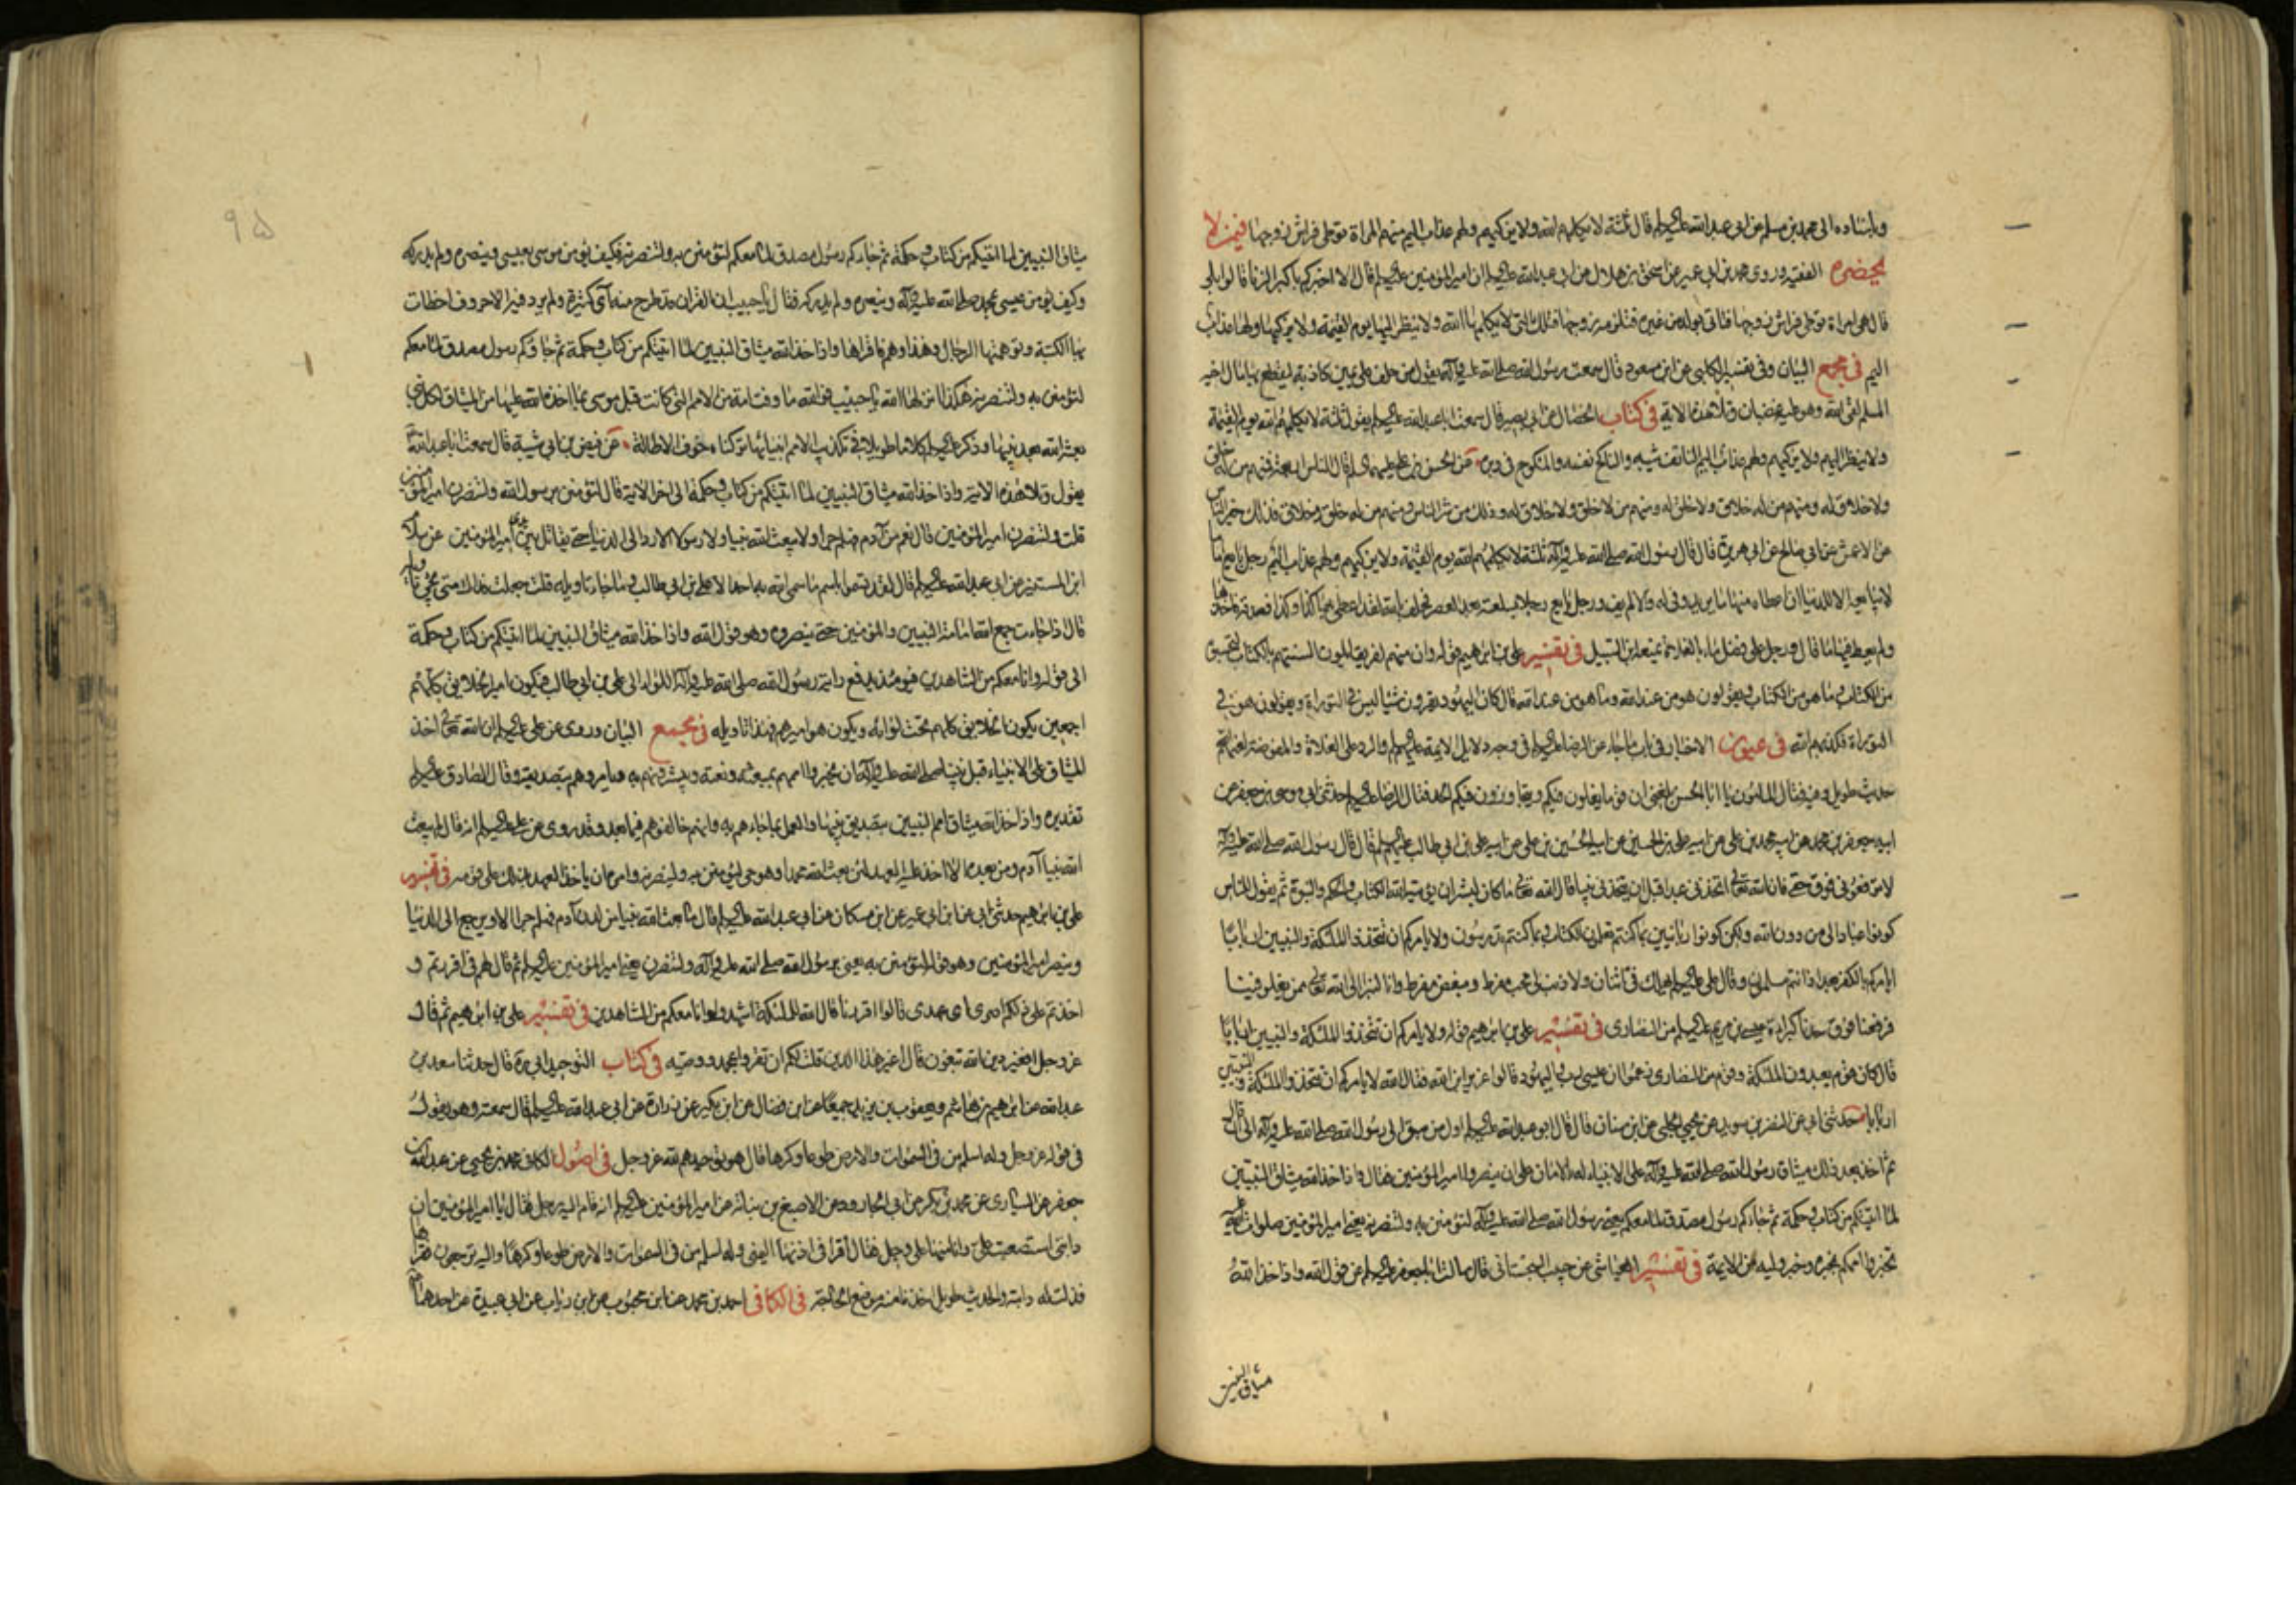 وباسناده الى محمد بن مسلم عن ابى عبد الله عليه السلام قال ثلثة لا يكلمهم الله ولا يزكيهم ولهم عذاب اليم منهم المراة توطى فراش زوجها فيمن لا
يحضره الفقيه وروى محمد بن ابى عمير عن اسحق بن هلال عن ابى عبد الله عليه السلام ان امير المؤمنين عليه السلام قال الا اخبركم باكبر الزنا قالوا بلى
قال هى امراة توطى فراش زوجها فتاتى بولد من غيره فتلزمه زوجها فتلك التى لا يكلمها الله ولا ينظر اليها يوم القيمة ولا يزكيها ولها عذاب
اليم فى مجمع البيان وفى تفسير الكلبى عن ابن مسعود قال سمعت رسول الله صلى الله عليه وآله يقول من حلف على يمين كاذبة ليقطع بها مال اخيه
المسلم لقى الله وهو عليه غضبان وتلا هذه الاية فى كتاب الخصال عن ابى بصير قال سمعت ابا عبد الله عليه السلام يقول ثلثة لا يكلمهم الله يوم القيمة
ولا ينظر اليهم ولا يزكيهم ولهم عذاب اليم الناتف شيبه والناكح نفسه والمنكوح فى دبره عن الحسن بن على عليهما السلام قال الناس اربعة فمنهم من له خلق
ولا خلاق له ومنهم من له خلاق ولا خلق له ومنهم من لا خلق ولا خلاق له وذلك من شر الناس ومنهم من له خلق وخلاق فذلك خير الناس
عن الاعمش عن ابى صالح عن ابى هريرة قال قال رسول الله صلى الله عليه وآله ثلثة لا يكلمهم الله يوم القيمة ولا يزكيهم ولهم عذاب اليم رجل بايع اماما
لا يبايعه الا للدنيا ان اعطاه منها ما يريد وفى له والا لم يف ورجل بايع رجلا بسلعته بعد العصر فحلف بالله لقد اعطى بها كذا وكذا فصدقه فاخذها
ولم يعط فيها ما قال ورجل على فضل ماء بالفلاة يمنعه ابن السبيل فى تفسير على بن ابراهيم قوله وان منهم لفريقا يلون السنتهم بالكتاب لتحسبوه
من الكتاب وما هو من الكتاب ويقولون هو من عند الله وما هو من عند الله قال كان اليهود يقرون شيئا ليس فى التوراة ويقولون هو فى
التوراة فكذبهم الله فى عيون الاخبار فى باب ما جاء عن الرضا عليه السلام فى وجه دلايل الايمة عليهم السلام والرد على الغلاة والمفوضة لعنهم الله
حديث طويل وفيه فقال المامون يا ابا الحسن بلغنى ان قوما يغلون فيكم ويتجاوزون فيكم الحد فقال الرضا عليه السلام حدثنى ابى موسى بن جعفر عن
ابيه جعفر بن محمد عن ابيه محمد بن على عن ابيه على بن الحسين عن ابيه الحسين بن على عن ابيه على بن ابى طالب عليهم السلام قال قال رسول الله صلى الله عليه وآله
لا ترفعونى فوق حقى فان الله تعالى اتخذنى عبدا قبل ان يتخذنى نبيا قال الله تعالى ما كان لبشر ان يؤتيه الله الكتاب والحكم والنبوة ثم يقول للناس
كونوا عبادا لى من دون الله ولكن كونوا ربانيين بما كنتم تعلمون الكتاب وبما كنتم تدرسون ولا يامركم ان تتخذوا الملئكة والنبيين اربابا
ايامركم بالكفر بعد اذ انتم مسلمون وقال على عليه السلام يهلك فى اثنان ولا ذنب لى محب مفرط ومبغض مفرط وانا لنبرا الى الله تعالى ممن يغلو فينا
فرفعنا فوق حدنا كبراءة عيسى بن مريم عليه السلام من النصارى فى تفسير على بن ابراهيم قوله ولا يامركم ان تتخذوا الملئكة والنبيين اربابا
قال كان قوم يعبدون الملئكة وقوم من النصارى زعموا ان عيسى رب واليهود قالوا عزير ابن الله فقال الله لا يامركم ان تتخذوا الملئكة والنبيين
اربابا حدثنى ابى عن النضر بن سويد عن يحيى الحلبى عن ابن سنان قال قال ابو عبد الله عليه السلام اول من سبق الى رسول الله صلى الله عليه وآله الى ان قال
ثم اخذ بعد ذلك ميثاق رسول الله صلى الله عليه وآله على الانبياء له بالايمان وعلى ان ينصروا امير المؤمنين فقال واذ اخذ الله ميثاق النبيين
لما اتيتكم من كتاب وحكمة ثم جاءكم رسول مصدق لما معكم يعنى رسول الله صلى الله عليه وآله لتؤمنن به ولتنصرنه يعنى امير المؤمنين صلوات الله عليه
تخبروا اممكم بخبره وخبر وليه من الايمة فى تفسير العياشى عن حبيب السجستانى قال سالت ابا جعفر عليه السلام عن قول الله واذ اخذ الله
ميثاق النبيين
٩٥
ميثاق النبيين لما اتيتكم من كتاب وحكمة ثم جاءكم رسول مصدق لما معكم لتؤمنن به ولتنصرنه فكيف يؤمن موسى بعيسى وينصره ولم يدركه
وكيف يؤمن عيسى بمحمد صلى الله عليه وآله وينصره ولم يدركه فقال يا حبيب ان القران قد طرح منه آى كثيرة ولم يزد فيه الا حروف اخطات
بها الكتبة وتوهمتها الرجال وهذا وهم فاقراها واذ اخذ الله ميثاق النبيين لما اتيتكم من كتاب وحكمة ثم جاءكم رسول مصدق لما معكم
لتؤمنن به ولتنصرنه هكذا انزلها الله يا حبيب فوالله ما وفت امة من الامم التى كانت قبل موسى بما اخذ الله عليها من الميثاق لكل نبى
بعثه الله بعد نبيها وذكر عليه السلام كلاما طويلا فى تكذيب الامم انبيائها تركناه خوف الاطالة عن فيض بن ابى شيبة قال سمعت ابا عبد الله
يقول وتلا هذه الاية واذ اخذ الله ميثاق النبيين لما اتيتكم من كتاب وحكمة الى اخر الاية قال لتؤمنن برسول الله ولتنصرن امير المؤمنين
قلت ولتنصرن امير المؤمنين قال نعم من آدم فهلم جرا ولا يبعث الله نبيا ولا رسولا الا رد الى الدنيا حتى يقاتل بين يدى امير المؤمنين عن سلام
ابن المستنير عن ابى عبد الله عليه السلام قال لقد تسموا باسم ما سمى الله به احدا الا على بن ابى طالب وما جاء تاويله قلت جعلت فداك متى يجئ تاويله
قال اذا جاءت جمع الله امامه النبيين والمؤمنين حتى ينصروه وهو قول الله واذ اخذ الله ميثاق النبيين لما اتيتكم من كتاب وحكمة
الى قوله وانا معكم من الشاهدين فيومئذ يدفع راية رسول الله صلى الله عليه وآله اللواء الى على بن ابى طالب فيكون امير الخلايق كلهم
اجمعين يكون الخلايق كلهم تحت لوائه ويكون هو اميرهم فهذا تاويله فى مجمع البيان وروى عن على عليه السلام ان الله تعالى اخذ
الميثاق على الانبياء قبل نبينا صلى الله عليه وآله ان يخبروا اممهم بمبعثه ونعته ويبشروهم به ويامروهم بتصديقه وقال الصادق عليه السلام
تقديره واذ اخذ الله ميثاق امم النبيين بتصديق نبيها والعمل بما جاءهم به وانهم خالفوهم فيما بعد وقد روى عن على عليه السلام انه قال لم يبعث
الله نبيا آدم ومن بعده الا اخذ عليه العهد لئن بعث الله محمدا وهو حى ليؤمنن به ولينصرنه وامره ان ياخذ العهد بذلك على قومه فى تفسير
على بن ابراهيم حدثنى ابى عن ابن ابى عمير عن ابن مسكان عن ابى عبد الله عليه السلام قال ما بعث الله نبيا من لدن آدم فهلم جرا الا ويرجع الى الدنيا
وينصر امير المؤمنين وهو قوله لتؤمنن به يعنى برسول الله صلى الله عليه وآله ولتنصرن يعنى امير المؤمنين عليه السلام ثم قال لهم فى اقررتم و
اخذتم على ذلكم اصرى اى عهدى قالوا اقررنا قال الله للملئكة اشهدوا وانا معكم من الشاهدين فى تفسير على بن ابراهيم ثم قال
عز وجل افغير دين الله تبغون قال اغير هذا الدين قلت لكم ان تقروا بمحمد ووصيه فى كتاب التوحيد ابى ره قال حدثنا سعد بن
عبد الله عن ابراهيم بن هاشم ويعقوب بن يزيد جميعا عن ابن فضال عن ابن بكير عن زرارة عن ابى عبد الله عليه السلام قال سمعته وهو يقول
فى قوله عز وجل وله اسلم من فى السموات والارض طوعا وكرها قال هو توحيدهم لله عز وجل فى اصول الكافى محمد بن يحيى عن عبد الله بن
جعفر عن السيارى عن محمد بن بكر عن ابى الجارود عن الاصبغ بن نباتة عن امير المؤمنين عليه السلام انه قام اليه رجل فقال يا امير المؤمنين ان
دابتى استصعبت على وانا منها على وجل فقال اقرا فى اذنها اليمنى وله اسلم من فى السموات والارض طوعا وكرها واليه ترجعون فقراها
فذلت له دابته والحديث طويل اخذنا منه موضع الحاجة فى الكافى احمد بن محمد عن ابن محبوب عن ابن رئاب عن ابى عبيدة عن احدهما